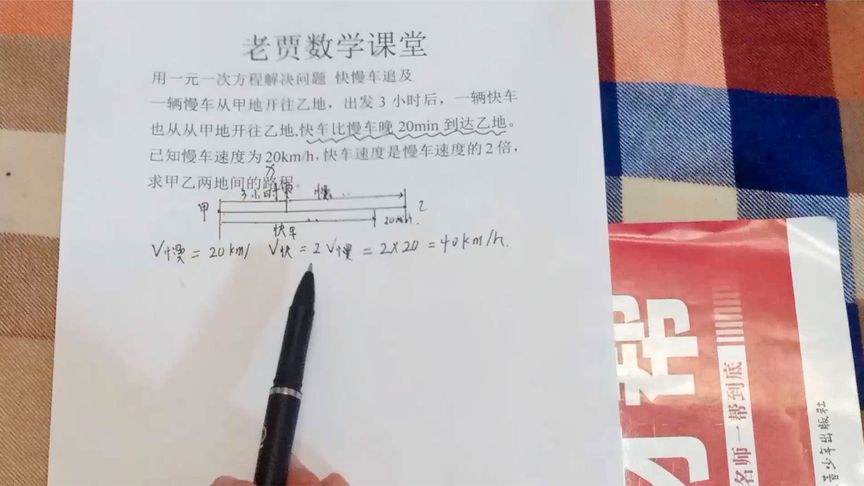 老贾数学课堂
用一元一次方程解决问题 快慢车追及
一辆慢车从甲地开往乙地，出发 3 小时后，一辆快车
也从从甲地开往乙地,快车比慢车晚 20min 到达乙地。
已知慢车速度为 20km/h,快车速度是慢车速度的 2 倍，
求甲乙两地间的路程。
x
3小时慢 慢
甲 乙
快车 20min
V慢 = 20km/ V快 = 2V慢 = 2×20 = 40km/h.
帮
名师一帮到底
青少年出版社